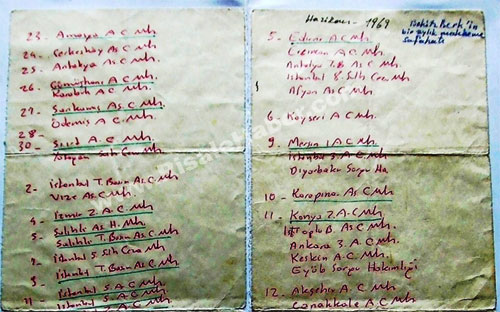 23 - Amasya A. C. Mh.
24 - Çerkeşköy As. C. Mh.
25 - Antakya As. C. Mh.
26 - Gümüşhane As. C. Mh.
Karabük As. C. Mh.
27 - Sarıkamış As. C. Mh.
Ödemiş A. C. Mh.
28 -
30 - Siirt A. C. Mh.
Sulh Ceza Mh.
2 - İstanbul T. Basın As. C. Mh.
Vize As. C. Mh.
4 - İzmir 2. A. C. Mh.
5 - Salihli As. H. Mh.
Salihli T. Basın As. C. Mh.
7 - İstanbul 5. Slh Ceza Mh.
9 - İstanbul T. Basın As. C. Mh.
11 - İstanbul 5. A. C. Mh.
İstanbul 5. A. C. Mh.
Haziran - 1969
Bekir Berk'in
bir aylık mahkeme
safahatı
5 - Edirne As. C. Mh.
Erzincan A. C. Mh.
Antalya T. B. As. C. Mh.
İstanbul 8. Slh Cez. Mh.
Afyon As. C. Mh.
6 - Kayseri A. C. Mh.
9 - Mersin 1 A. C. Mh.
İstanbul 5. A. C. Mh.
Diyarbakır Sorgu Ha.
10 - Karapınar As. C. Mh.
11 - Konya 2. A. C. Mh.
Top. B. As. C. Mh.
Ankara 3. A. C. Mh.
Keskin A. C. Mh.
Eyüb Sorgu Hakimliği
12 - Akşehir A. C. Mh.
Çanakkale A. C. Mh.